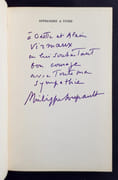 APPRENDRE A VIVRE
à Odette et Alain
Virmaux
en leur souhaitant
bon courage
avec toute ma
sympathie
Philippe Soupault